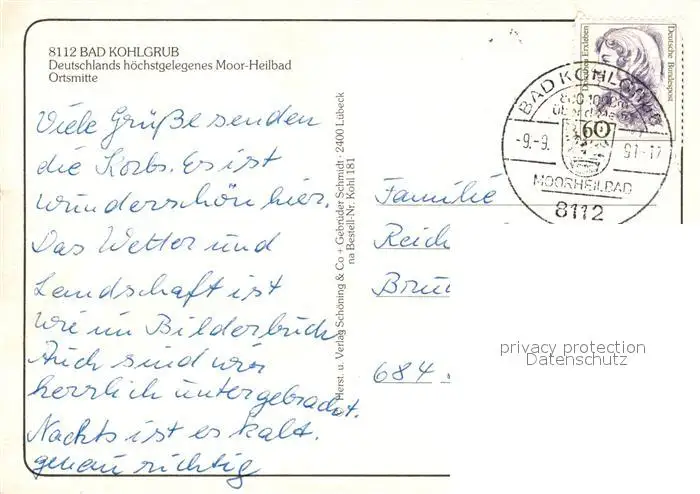 8112 BAD KOHLGRUB
Deutschlands höchstgelegenes Moor-Heilbad
Ortsmitte
Viele Grüße senden
die Korbs. Es ist
wunderschön hier.
Das Wetter und
Landschaft ist
wie im Bilderbuch
Auch sind wir
herrlich untergebracht.
Nachts ist es kalt.
genau richtig
Herst. u. Verlag Schöning & Co + Gebrüder Schmidt · 2400 Lübeck
na Bestell-Nr. Kohl 181
Deutsche Bundespost
60
BAD KOHLGRUB
-9.-9. 91-17
MOORHEILBAD
8112
Familie
Reich
684
privacy protection
Datenschutz